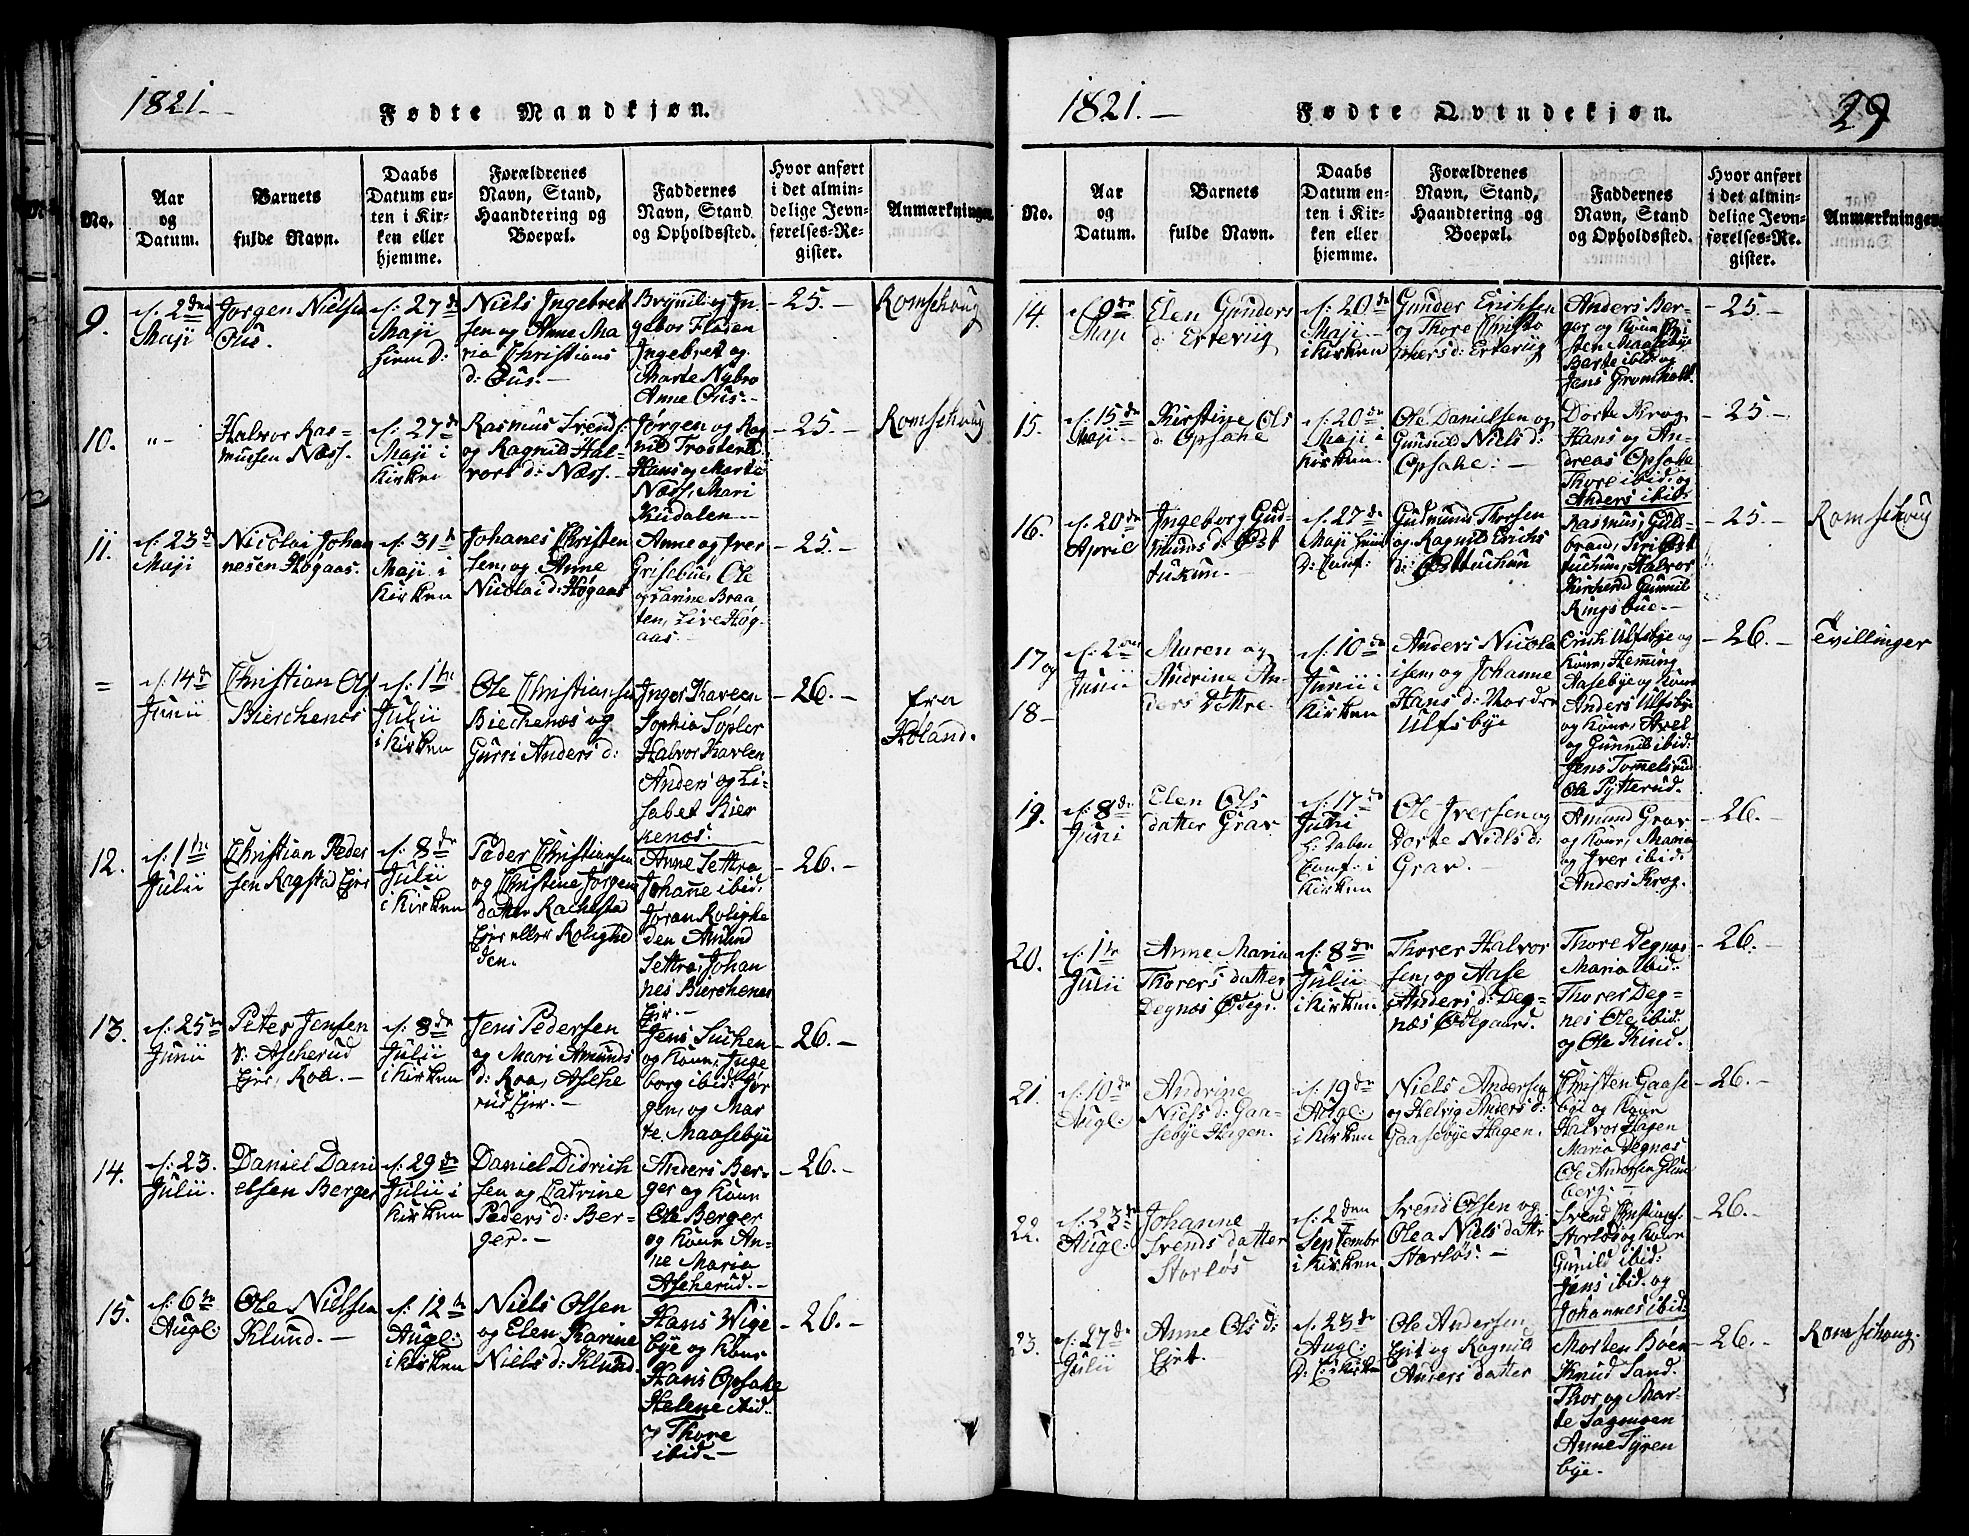 1821.
Fødte Mandkjøn.
No.
Aar
og
Datum.
Barnets
fulde Navn.
Daabs
Datum en-
ten i Kir-
ken eller
hjemme.
Forældrenes
Navn, Stand,
Haandtering og
Boepæl.
Faddernes
Navn, Stand
og Opholdssted.
Hvor anført
i det almin-
delige Jevn-
førelses-Re-
gister.
Anmærkninger
9.
d: 2den
Maji
Jørgen Nielsen
Ous.
d: 27de
Maji
Niels Ingebret
sen og Anne Ma
ria Christians
d: Ous.-
Bryned og In-
gebor Fladen
Ingebret og
Marte Nybro
Anne Ous.-
- 25. -
Romschoug
10.
"-
Halvor Ras-
musen Næss.
d: 27de
Maji i
Kirken
Rasmus Svends:
og Ragnild Hal-
vors d: Næss. -
Jørgen og Rag
nild Trosterud
Hans og Marte
Næss, Mari
Kudalen -
- 25. -
Romschoug
11.
d: 23de
Maji
Nicolai Johan
nesen Høgaas.
d: 31te
Maji i
Kirken
Johanes Christen
sen, og Anne
Nicolai d: Høgaas
Anne og Iver
Grisebue, Ole
og Karine Braa
ten, Live Høg-
aas. -
- 25. -
=
d: 14de
Junii
Christian Ols
Bierchenæs
d: 1te
Julii
i Kirken
Ole Christiansen
Bierchenæs og
Gurri Anders d:
Inger Kavlen
Sophia Søpler
Halvor Kavlen
Anders og Li-
sabet Bier
kenæs.
- 26. -
fra
Høland.
12.
d: 1te
Julii
Christian Peder
sen Ragstad Ejer
d: 8de
Julii
i Kirken
Peder Christiansen
og Christine Jørgens
datter Rachestad
Ejer eller Rolighe
den.
Anne Settra
Johane ibid:
Jøran Rolighe
den Amund
Settra, Johan
nes Bierchenes
Ejer.-
- 26. -
13.
d: 25de
Junii
Peter Jensen
v: Ascherud
Ejer, Roa. -
d: 8de
Julii
i Kirken
Jens Pedersen
og Mari Amunds
d: Roa, Asche
rud Ejer. -
Jens Suchen
og Kone, Inge
borg ibid: Jør
gen, og Mar-
te Maasebye
- 26. -
14.
d: 23.
Julii.
Daniel Dani
elsen Berger
d: 29de
Julii i
Kirken
Daniel Didrich
sen og Catrine
Peders d: Ber-
ger. -
Anders Ber-
ger og Kone
Ole Berger
og Kone An-
ne Maria
Ascherud. -
- 26. -
15.
d: 6te
Augl:
Ole Nielsen
Klund. -
d: 12te
Augl:
i Kirken
Niels Olsen
og Elen Karine
Niels d: Klund.
Hans Wige
bye og Kone
Hans Opsahe
Helene ibid:
og Thore
ibid. -
- 26. -
1821. -
Fødte Qvindekjøn.
29
No.
Aar
og
Datum.
Barnets
fulde Navn.
Daabs
Datum en-
ten i Kir-
ken eller
hjemme.
Forældrenes
Navn, Stand,
Haandtering og
Boepæl.
Faddernes
Navn, Stand
og Opholdssted.
Hvor anført
i det almin-
delige Jevn-
førelses-Re-
gister.
Anmærkninger
14.
d: 9de
Maji
Elen Gunders
d: Erteviig
d: 20de
Maji
i Kirken
Gunder Erichsen
og Thore Christo
phers d: Erteviig
Anders Ber-
ger og Kone
sten Maasebye
Berte ibid: og
Jens Gromholt.
- 25. -
15.
d: 15de
Maji. -
Kirstine Ols
d: Opsahe
d: 20de
Maji i
Kirken.
Ole Danielsen og
Gunnild Niels d:
Opsahe: -
Dorte Krog
Hans og An-
dreas Opsahe
Thore ibid: og
Anders ibid:
- 25 -
16.
d: 20de
April
Ingeborg Gud-
munds d: Øst
tukun. -
d: 27de
Maji
D: Conf:
Gudmund Thorsen
og Ragnil Erichs
d: Østtuchun
Rasmus, Guld-
brand, Siri Øst
tuchun, Halvor
Kircherud Gunnil
Ringsbue. -
- 25. -
Romschoug
17 og
18 -
d: 2den
Junii
Maren og
Andrine An-
ders Døttre.
d: 10de
Junii i
Kirken
Anders Nicola
isen, og Johanne
Hans d: Nordre
Ulfsbye
Erich Ulfsbye og
Kone, Heming
Aasebye og Kone
Anders Ulfsbye
og Kone, Axel
og Gunnil ibid:
Jens Tomelsrud
Ole Pytterud.
- 26. -
Tvillinger
19.
d: 8de
Juni
Elen Ols
datter Grav
d: 17de
Juni
h: daben
Conf: i
Kirken
Ole Iversen og
Dorte Niels d:
Grav. -
Amund Grav
og Kone, Maria
og Iver ibid:
Anders Krog.
- 26. -
20.
d: 1te
Julii
Anne Maria
Thorers datter
Degnæs Ødeg:
d: 8de
Julii
i Kirken
Thorer Halvor
sen, og Aase
Anders d: Deg-
næs Ødegaard.
Thore Degnæs
Maria ibid:
Thorer Deg-
nes Ole ibid:
og Ole Kind.
- 26. -
21.
d: 10de
Augl:
Andrine
Niels d: Gaa-
sebye Hagen.
d: 19de
Augl:
i Kirken
Niels Andersen
og Helvig Anders d:
Gaasebye Hagen.
Christen Gaase
bye og Kone
Halvor Hagen
Maria Degnæs
Ole Andersen Glom
berg. -
- 26. -
22.
d: 23de
Augl:
Johanne
Svends datter
Storløs
d: 2den
Septembr
i Kirken
Svend Olsen og
Olea Niels datter
Storløs: -
Svend Christians:
Storløs og Kone
Gunild ibid:
Jens ibid: og
Johannes ibid:
- 26. -
23.
d: 27de
Julii
Anne Ols d:
Ejet.
d: 23de
Augl:
D: C: i Kirken
Ole Andersen
Ejet og Ragnild
Anders datter
Morten Bøen
Knud Sand.
Thor, og Mar-
te Sagmoen
Anne Tyren
bye.
- 26. -
Romschoug.